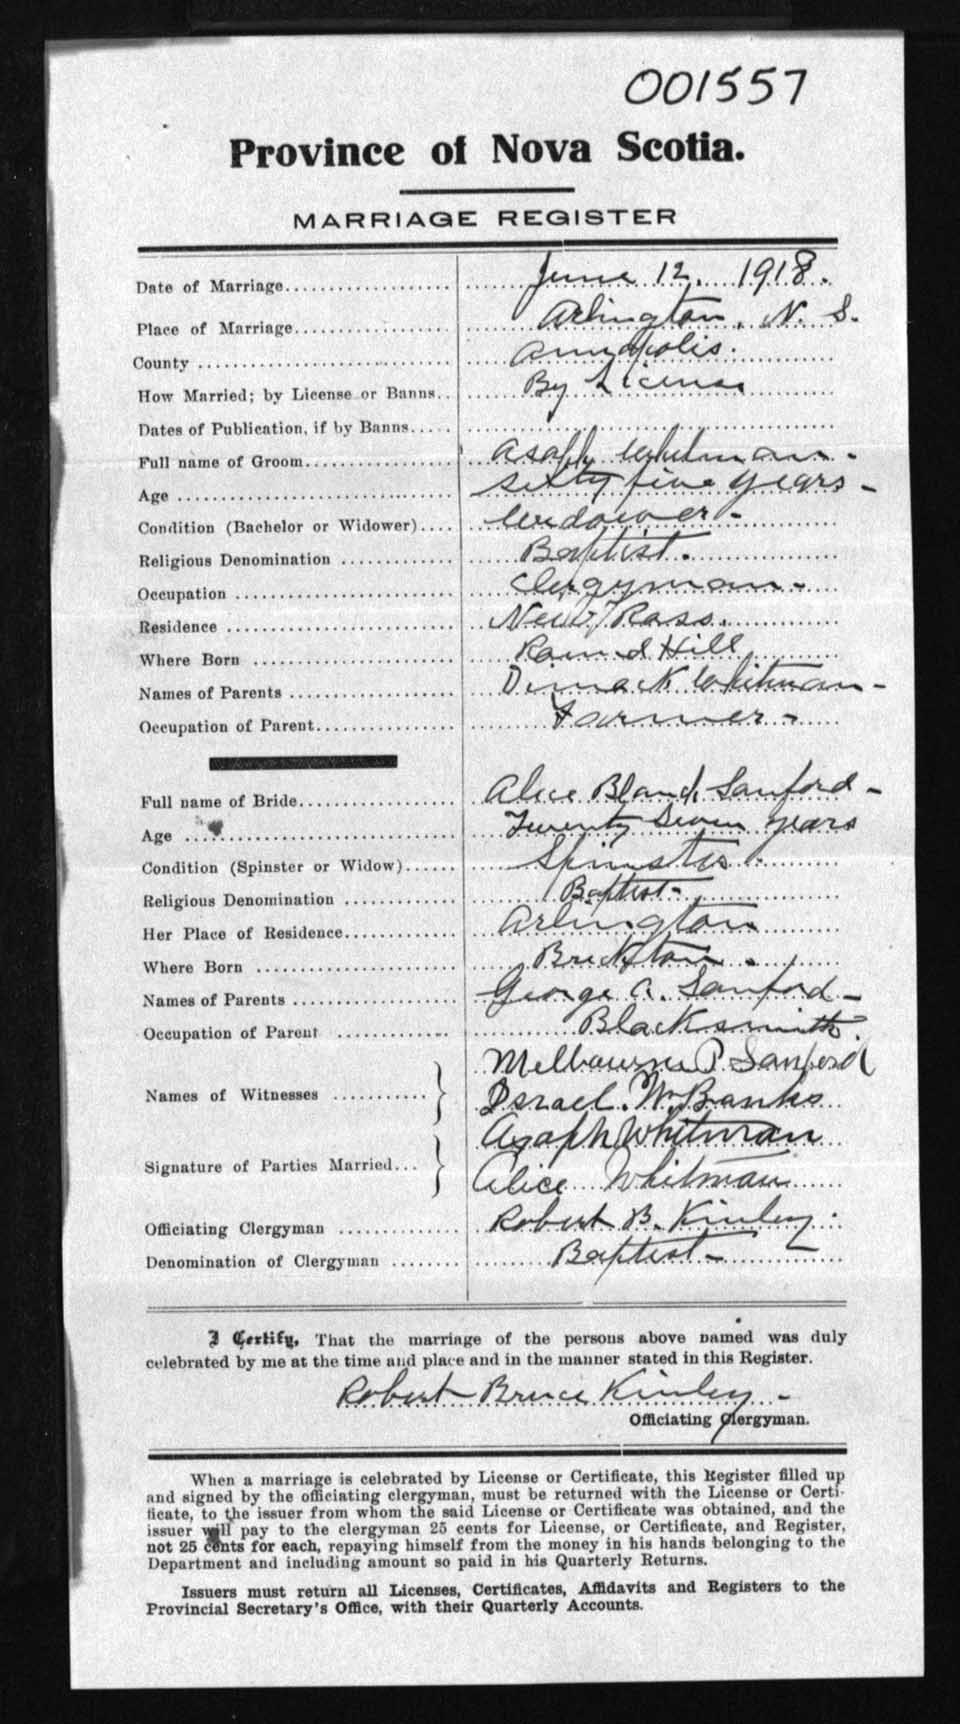 001557
Province of Nova Scotia.
MARRIAGE REGISTER
Date of Marriage June 12, 1918.
Place of Marriage Arlington, N. S.
County Annapolis.
How Married; by License or Banns By License
Dates of Publication, if by Banns
Full name of Groom Asaph Whitman
Age Sixty five years
Condition (Bachelor or Widower) Widower
Religious Denomination Baptist.
Occupation Clergyman
Residence New Ross.
Where Born Round Hill
Names of Parents Dimock Whitman
Occupation of Parent Farmer
Full name of Bride Alice Bland Sanford
Age Twenty Seven years
Condition (Spinster or Widow) Spinster
Religious Denomination Baptist
Her Place of Residence Arlington
Where Born Brickton.
Names of Parents George A. Sanford
Occupation of Parent Blacksmith
Names of Witnesses Melbourne P. Sanford
Israel. W. Banks
Signature of Parties Married Asaph Whitman
Alice Whitman
Officiating Clergyman Robert B. Kinley.
Denomination of Clergyman Baptist
I Certify, That the marriage of the persons above named was duly
celebrated by me at the time and place and in the manner stated in this Register.
Robert Bruce Kinley
Officiating Clergyman.
When a marriage is celebrated by License or Certificate, this Register filled up
and signed by the officiating clergyman, must be returned with the License or Certi-
ficate, to the issuer from whom the said License or Certificate was obtained, and the
issuer will pay to the clergyman 25 cents for License, or Certificate, and Register,
not 25 cents for each, repaying himself from the money in his hands belonging to the
Department and including amount so paid in his Quarterly Returns.
Issuers must return all Licenses, Certificates, Affidavits and Registers to the
Provincial Secretary's Office, with their Quarterly Accounts.